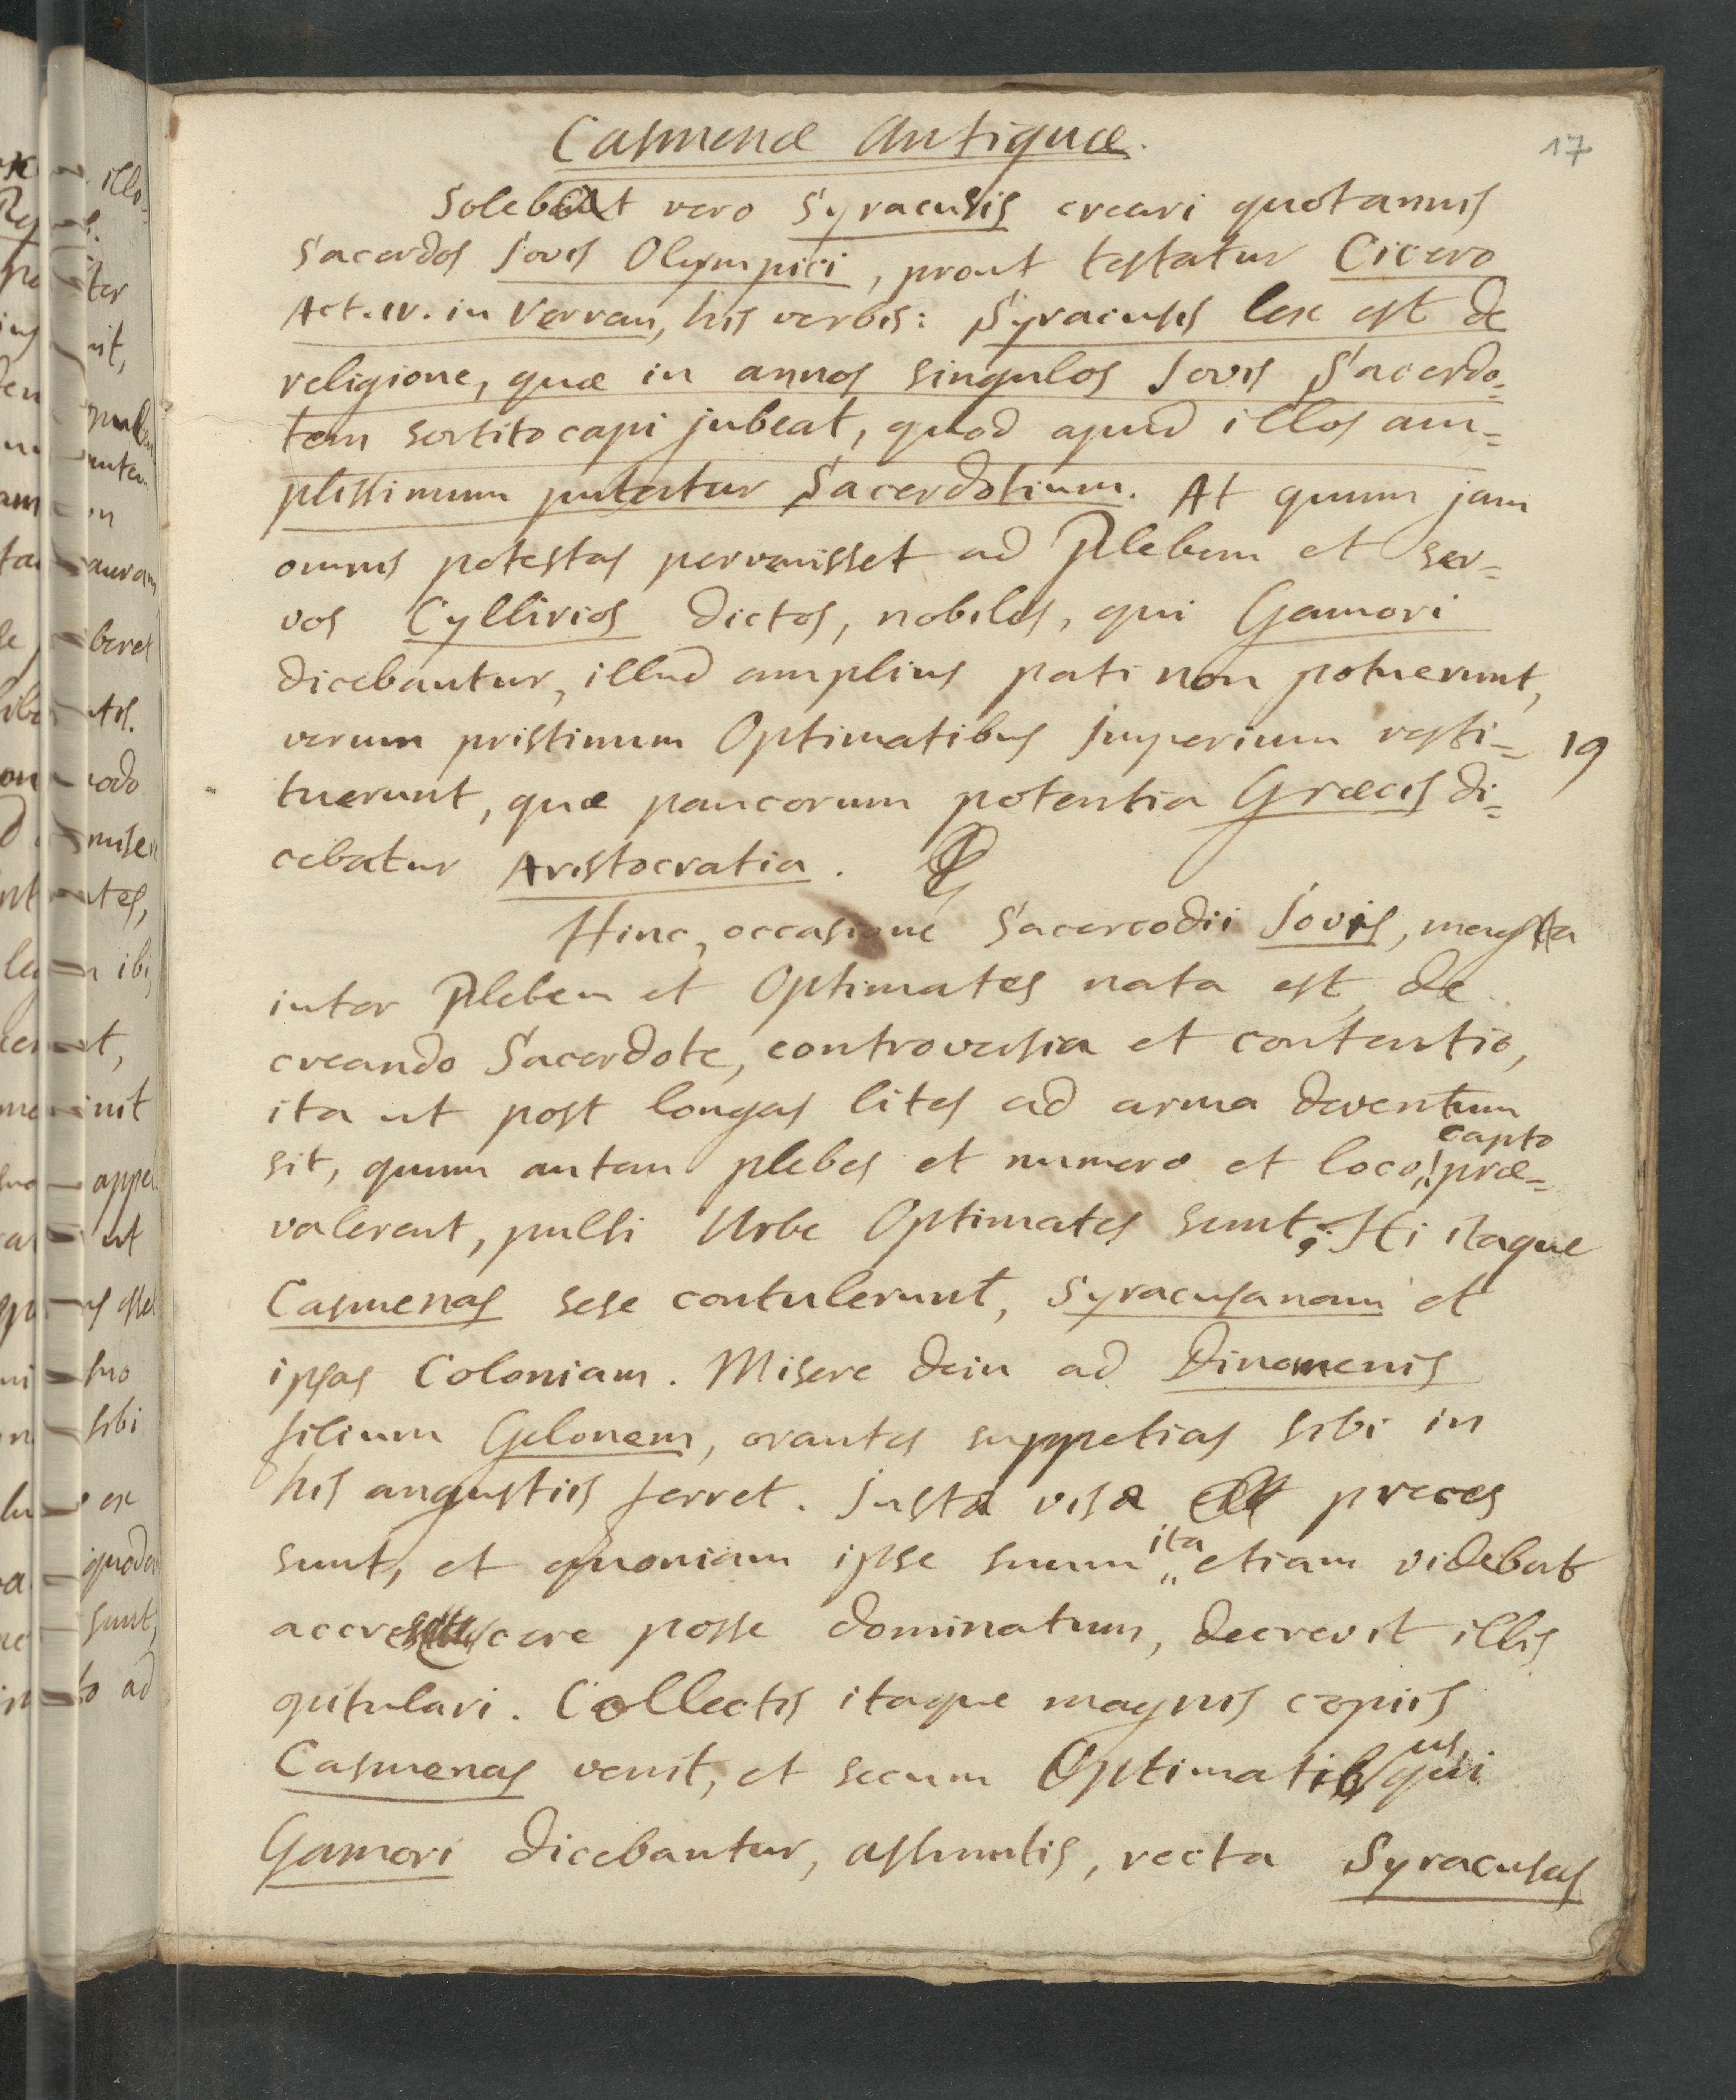 Casmenæ Antiquæ.
17
Solebat vero Syracusis creari quotannis
Sacerdos Jovis Olympici, prout testatur Cicero
Act. IV. in Verran, his verbis: Syracusis lex est de
religione, quæ in annos singulos Jovis Sacerdo=
tem sortito capi jubeat, quod apud illos am=
plissimum putatur Sacerdotium. At quum jam
omnis potestas pervenisset ad Plebem et ser=
vos Cyllirios dictos, nobiles, qui Gamori
dicebantur, illud amplius pati non potuerunt,
verum pristinum Optimatibus Imperium resti=
19
tuerunt, quæ paucorum potentia Græcis di=
cebatur Aristocratia.
Hinc, occasione Sacercodii Jovis, magna
inter Plebem et Optimates nata est, de
creando Sacerdote, controversia et contentio,
ita ut post longas lites ad arma deventum
sit, quum autem plebes et numero et loco, capto præ=
valerent, pulsi Urbe Optimates sunt. Hi itaque
Casmenas sese contulerunt, Syracusanam et
ipsas Coloniam. Misere dein ad Dinomenis
filium Gelonem, orantes suppetias sibi in
his angustiis ferret. Justæ visæ preces
sunt, et quoniam ipse suum ita etiam videbat
accrescere posse dominatum, decrevit illis
opitulari. Collectis itaque magnis copiis
Casmenas venit, et secum Optimatibus qui
Gamori dicebantur, assumtis, recta Syracusas